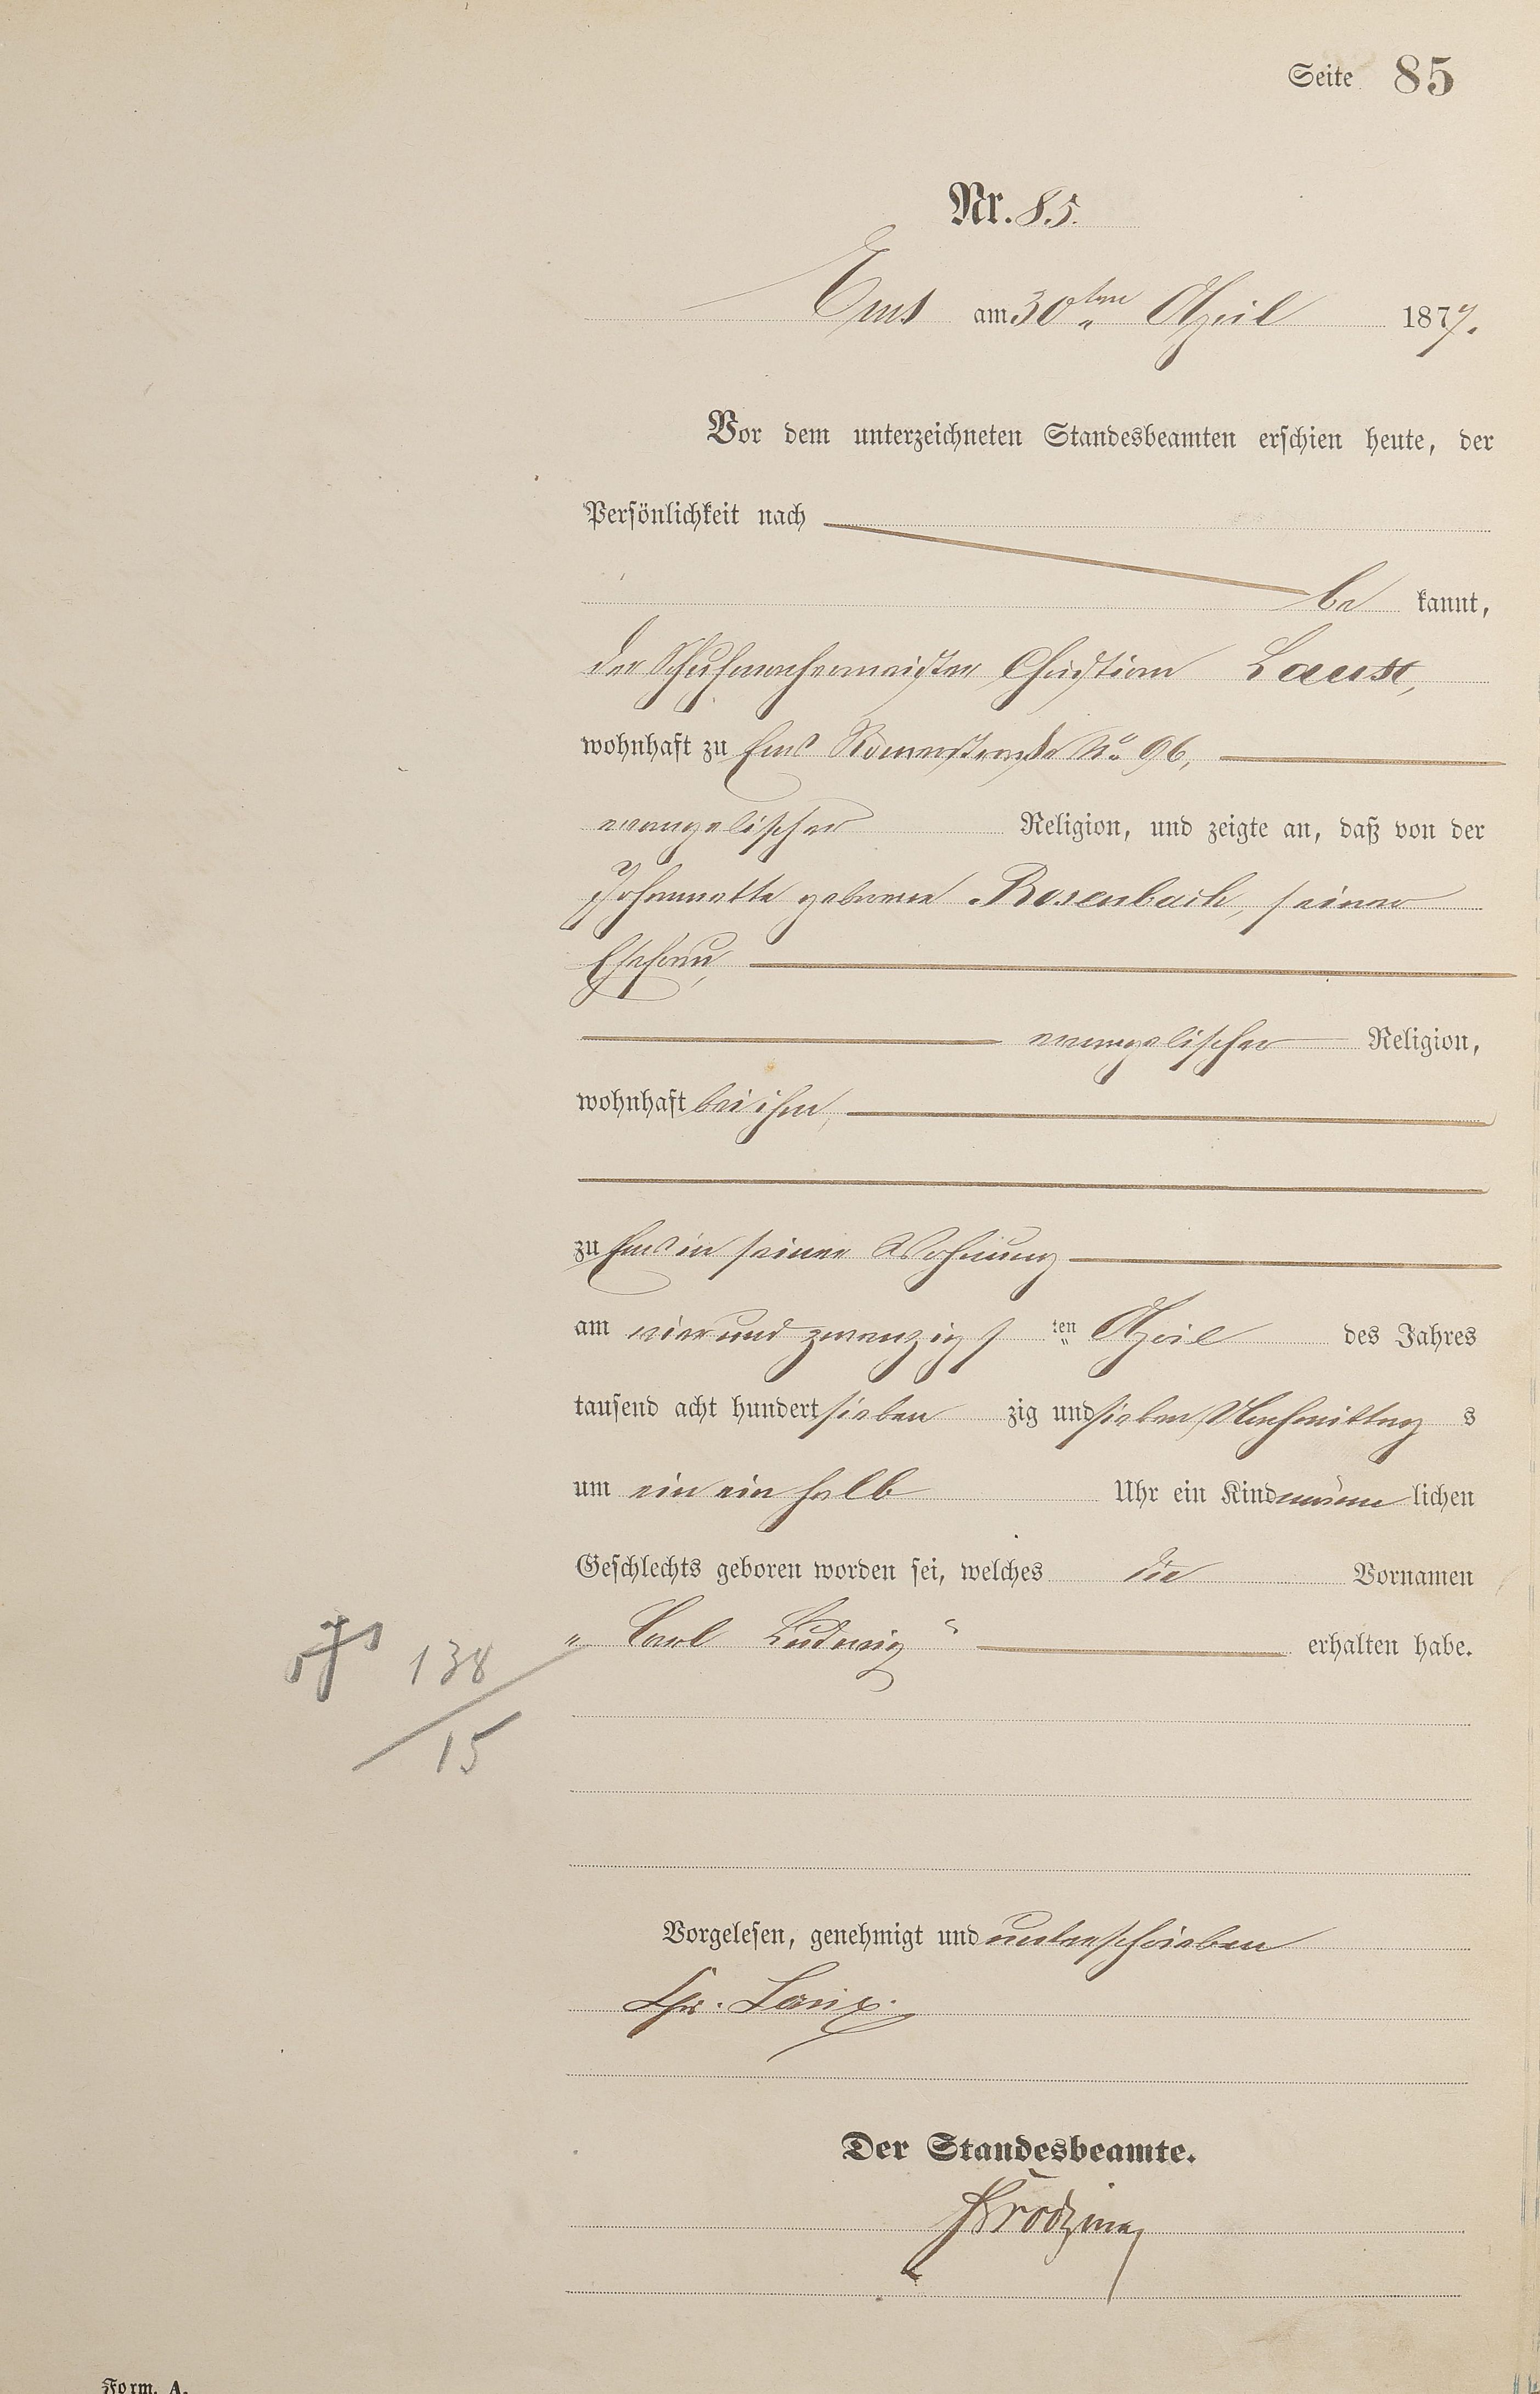 Seite 85
Nr. 85.
Ems am 30ten April 1877.
Vor dem unterzeichneten Standesbeamten erschien heute, der
Persönlichkeit nach
be kannt,
der Schuhmachermeister Christian Laux,
wohnhaft zu Ems Römerstraße No 96,
evangelischer Religion, und zeigte an, daß von der
Johannette geborene Rosenbach, seiner
Ehefrau,
evangelischer Religion,
wohnhaft bei ihm,
zu Ems in seiner Wohnung
am vier und zwanzigs ten April des Jahres
tausend acht hundert sieben zig und sieben Nachmittag s
um ein ein halb Uhr ein Kind männ lichen
Geschlechts geboren worden sei, welches die Vornamen
„ Carl Ludwig “ erhalten habe.
138
15
Vorgelesen, genehmigt und unterschrieben
Chr. Laux.
Der Standesbeamte.
Form. A.